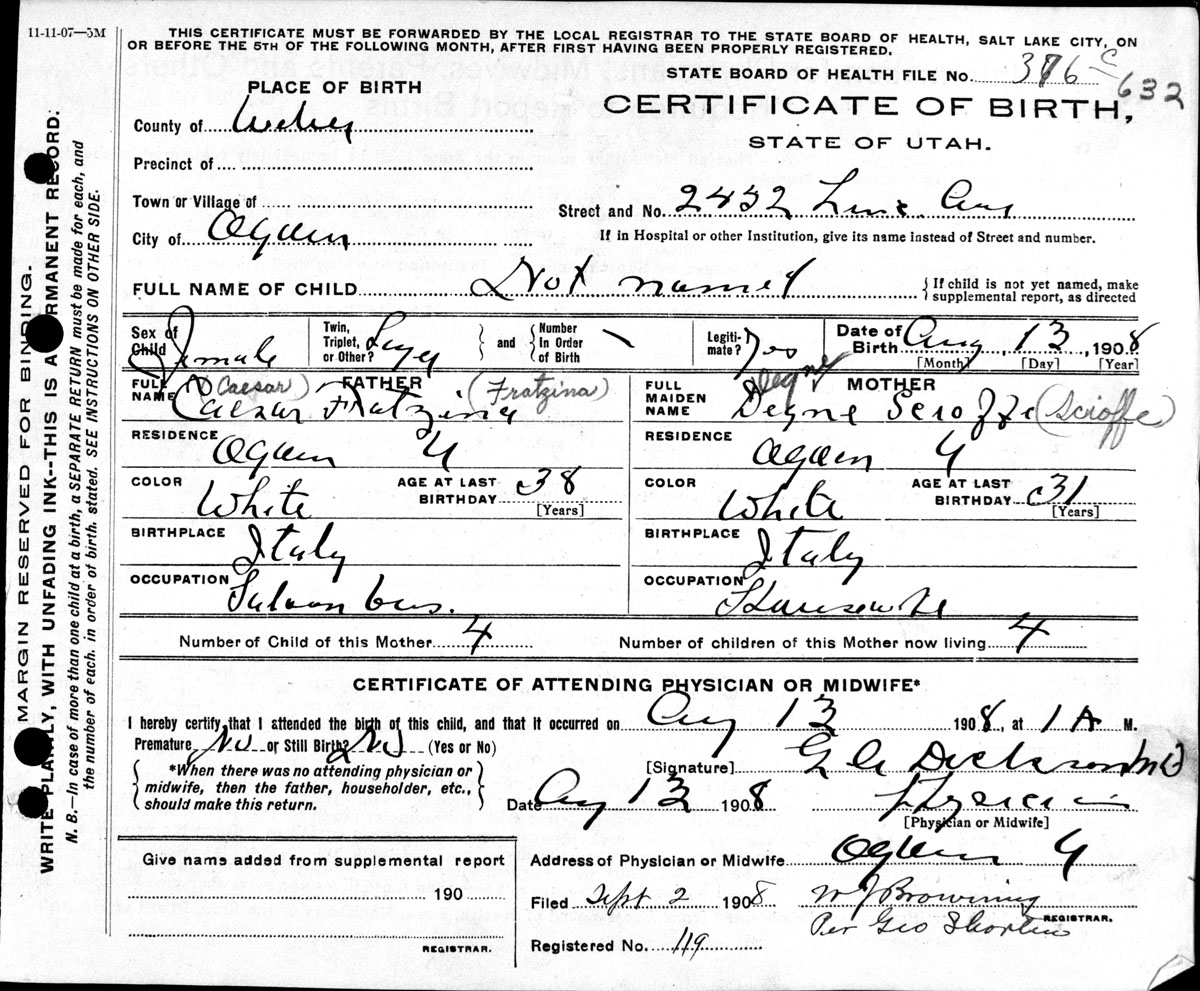 11-11-07—5M
THIS CERTIFICATE MUST BE FORWARDED BY THE LOCAL REGISTRAR TO THE STATE BOARD OF HEALTH, SALT LAKE CITY, ON
OR BEFORE THE 5TH OF THE FOLLOWING MONTH, AFTER FIRST HAVING BEEN PROPERLY REGISTERED.
STATE BOARD OF HEALTH FILE No. 376 C 632
PLACE OF BIRTH
CERTIFICATE OF BIRTH,
STATE OF UTAH.
County of Weber
Precinct of
Town or Village of
Street and No. 2432 Ave
City of Ogden
If in Hospital or other Institution, give its name instead of Street and number.
FULL NAME OF CHILD Not named
{If child is not yet named, make
supplemental report, as directed
Sex of Child Female
Twin, Triplet, or Other?
and
Number In Order of Birth
Legitimate? Yes
Date of Birth Aug 13, 1908
[Month] [Day] [Year]
FULL NAME FATHER Caesar Fratzina (Caesar) (Fratzina)
FULL MAIDEN NAME MOTHER Degne Sciozze (Scioffe)
RESIDENCE Ogden U
RESIDENCE Ogden U
COLOR White
AGE AT LAST BIRTHDAY 38 [Years]
COLOR White
AGE AT LAST BIRTHDAY 31 [Years]
BIRTHPLACE Italy
BIRTHPLACE Italy
OCCUPATION Saloon bus.
OCCUPATION Housewife
Number of Child of this Mother 4
Number of children of this Mother now living 4
CERTIFICATE OF ATTENDING PHYSICIAN OR MIDWIFE*
I hereby certify that I attended the birth of this child, and that it occurred on Aug 13 1908, at 1 A M.
Premature No or Still Birth? No (Yes or No)
[Signature] Dickson MD
{*When there was no attending physician or
midwife, then the father, householder, etc.,
should make this return.}
Date Aug 13 1908
Physician
[Physician or Midwife]
Give name added from supplemental report
190
REGISTRAR.
Address of Physician or Midwife Ogden U
Filed Sept 2 1908 W J Browning
REGISTRAR.
Per Geo Shorten
Registered No. 119
MARGIN RESERVED FOR BINDING.
WRITE PLAINLY, WITH UNFADING INK--THIS IS A PERMANENT RECORD.
N. B.—In case of more than one child at a birth, a SEPARATE RETURN must be made for each, and
the number of each. in order of birth. stated. SEE INSTRUCTIONS ON OTHER SIDE.